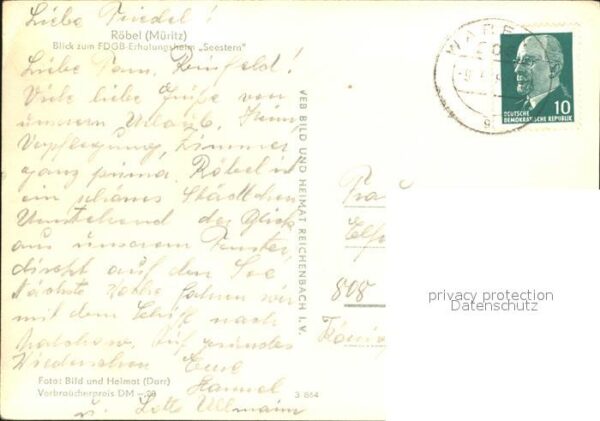 Liebe Friedel!
Röbel (Müritz)
Blick zum FDGB-Erholungsheim „Seestern"
Liebe Fam. Reinfeld!
Viele liebe Grüße von
unserem Urlaub.
Verpflegung, Zimmer
ganz prima. Röbel ist
ein schönes Städtchen
Umstehend der Blick
aus unserem Fenster,
direkt auf den See
Nächste Woche fahren wir
mit dem Schiff nach
Malchow. Auf gesundes
Wiedersehen Eure
Hannel
u. Lotte Ullmann
Foto: Bild und Heimat (Darr)
Verbraucherpreis DM –,20
3 864
VEB BILD UND HEIMAT REICHENBACH I. V.
WARE
10
DEUTSCHE
DEMOKRATISCHE REPUBLIK
Fra
Elf
808
König
privacy protection
Datenschutz